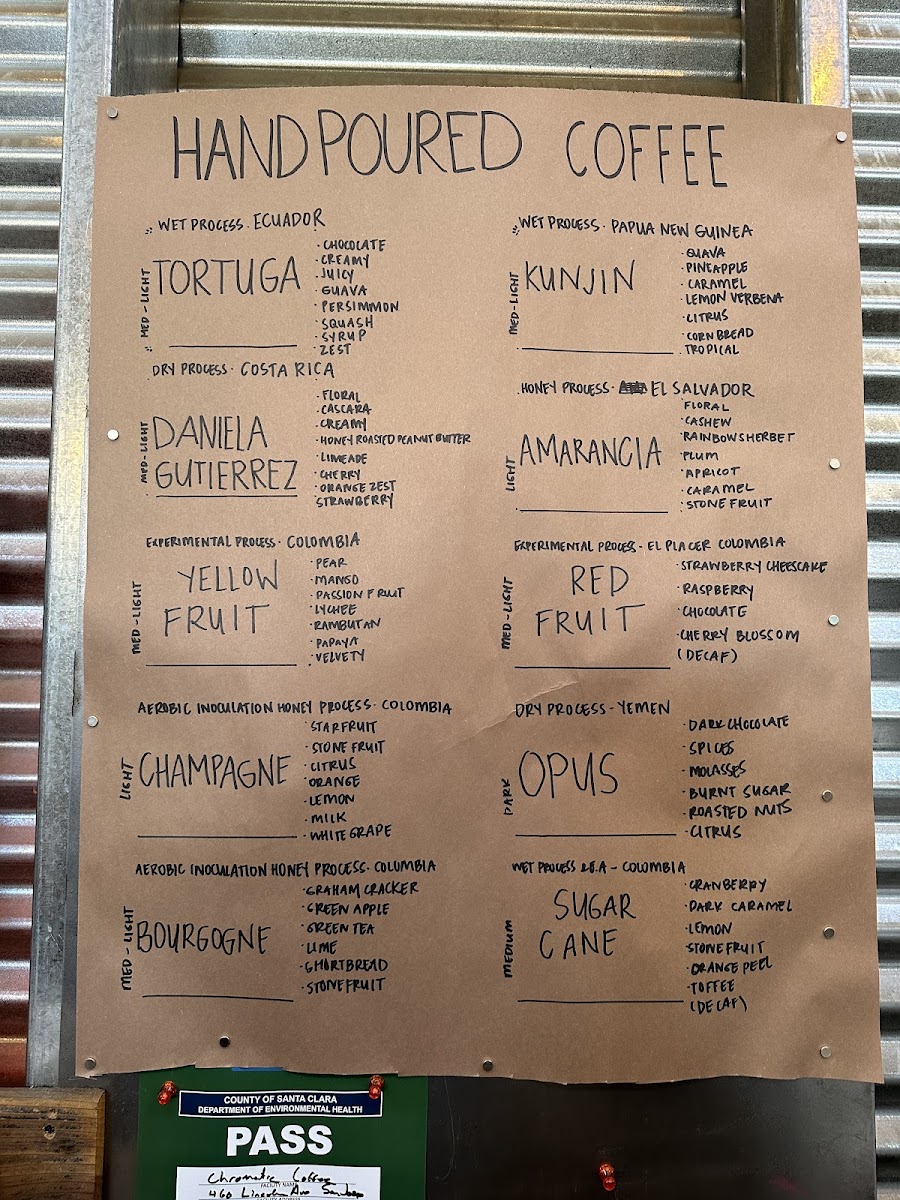 HANDPOURED COFFEE
WET PROCESS · ECUADOR
MED-LIGHT
TORTUGA
· CHOCOLATE
· CREAMY
· JUICY
· GUAVA
· PERSIMMON
· SQUASH
· SYRUP
· ZEST
DRY PROCESS · COSTA RICA
MED-LIGHT
DANIELA
GUTIERREZ
· FLORAL
· CASCARA
· CREAMY
· HONEY ROASTED PEANUT BUTTER
· LIMEADE
· CHERRY
· ORANGE ZEST
STRAWBERRY
EXPERIMENTAL PROCESS · COLOMBIA
MED-LIGHT
YELLOW
FRUIT
· PEAR
· MANGO
· PASSION FRUIT
· LYCHEE
· RAMBUTAN
· PAPAYA
· VELVETY
AEROBIC INOCULATION HONEY PROCESS · COLOMBIA
LIGHT
CHAMPAGNE
· STARFRUIT
· STONE FRUIT
· CITRUS
· ORANGE
· LEMON
· MILK
· WHITE GRAPE
AEROBIC INOCULATION HONEY PROCESS · COLUMBIA
MED-LIGHT
BOURGOGNE
· GRAHAM CRACKER
· GREEN APPLE
· GREEN TEA
· LIME
· SHORTBREAD
· STONEFRUIT
WET PROCESS · PAPUA NEW GUINEA
MED-LIGHT
KUNJIN
· GUAVA
· PINEAPPLE
· CARAMEL
· LEMON VERBENA
· CITRUS
· CORN BREAD
· TROPICAL
HONEY PROCESS · EL SALVADOR
LIGHT
AMARANCIA
· FLORAL
· CASHEW
· RAINBOW SHERBET
· PLUM
· APRICOT
· CARAMEL
· STONE FRUIT
EXPERIMENTAL PROCESS - EL PLACER COLOMBIA
MED-LIGHT
RED
FRUIT
· STRAWBERRY CHEESCAKE
· RASPBERRY
· CHOCOLATE
· CHERRY BLOSSOM
(DECAF)
DRY PROCESS - YEMEN
DARK
OPUS
· DARK CHOCOLATE
· SPICES
· MOLASSES
· BURNT SUGAR
· ROASTED NUTS
· CITRUS
WET PROCESS E.A - COLOMBIA
MEDIUM
SUGAR
CANE
· CRANBERRY
· DARK CARAMEL
· LEMON
STONEFRUIT
· ORANGE PEEL
· TOFFEE
(DECAF)
COUNTY OF SANTA CLARA
DEPARTMENT OF ENVIRONMENTAL HEALTH
PASS
Chromatic Coffee
FACILITY NAME
460 Lincoln Ave
FACILITY ADDRESS